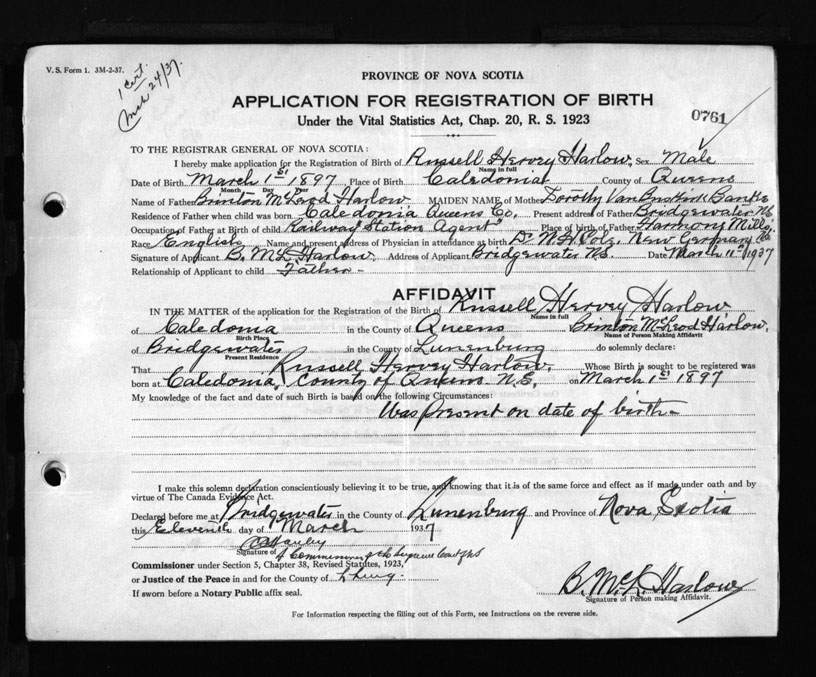 V. S. Form 1. 3M-2-37.
1 Cert.
Mch 24/37.
PROVINCE OF NOVA SCOTIA
APPLICATION FOR REGISTRATION OF BIRTH
0761
Under the Vital Statistics Act, Chap. 20, R. S. 1923
TO THE REGISTRAR GENERAL OF NOVA SCOTIA:
I hereby make application for the Registration of Birth of Russell Hervey Harlow, Sex Male
Name in full
Date of Birth March 1st 1897 Place of Birth Caledonia County of Queens
Month Day Year
Name of Father Brinton McLeod Harlow MAIDEN NAME of Mother Dorothy VanBuskirk Banks
Residence of Father when child was born Caledonia Queens Co. Present address of Father Bridgewater NS
Occupation of Father at Birth of child Railway Station Agent Place of birth of Father Harmony Mills.
Race English Name and present address of Physician in attendance at birth Dr N.H. New Germany
Signature of Applicant B. McL Harlow Address of Applicant Bridgewater N.S. Date March 11 1937
Relationship of Applicant to child Father
AFFIDAVIT
IN THE MATTER of the application for the Registration of the Birth of Russell Hervey Harlow
Name in full
of Caledonia in the County of Queens Brinton McLeod Harlow.
Birth Place Name of Person Making Affidavit
of Bridgewater in the County of Lunenburg do solemnly declare:
Present Residence
That Russell Hervey Harlow. Whose Birth is sought to be registered was
born at Caledonia, County of Queens N.S. on March 1st 1897
My knowledge of the fact and date of such Birth is based on the following Circumstances:
Was present on date of birth-
I make this solemn declaration conscientiously believing it to be true, and knowing that it is of the same force and effect as if made under oath and by
virtue of The Canada Evidence Act.
Declared before me at Bridgewater in the County of Lunenburg and Province of Nova Scotia
this Eleventh day of March 1937
Signature of A Commissioner of the Supreme Court of NS
Commissioner under Section 5, Chapter 38, Revised Statutes, 1923,
or Justice of the Peace in and for the County of
B. McL. Harlow
If sworn before a Notary Public affix seal.
Signature of Person making Affidavit.
For Information respecting the filling out of this Form, see Instructions on the reverse side.